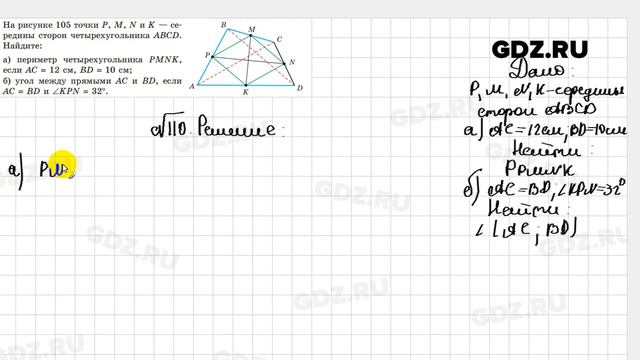 На рисунке 105 точки P, M, N и K — се-
редины сторон четырехугольника ABCD.
Найдите:
а) периметр четырехугольника PMNK,
если AC = 12 см, BD = 10 см;
б) угол между прямыми AC и BD, если
AC = BD и ∠KPN = 32°.
B
M
C
P
N
A
K
D
GDZ.RU
Дано:
P, M, N, K-середины
сторон ABCD
а) AC=12см, BD=10см
Найти:
PPMNK
б) AC=BD, ∠KPN=32°
Найти:
∠(AC; BD)
№110. Решение:
а) PM
GDZ.RU
GDZ.RU
GDZ.RU
GDZ.RU
GDZ.RU
GDZ.RU